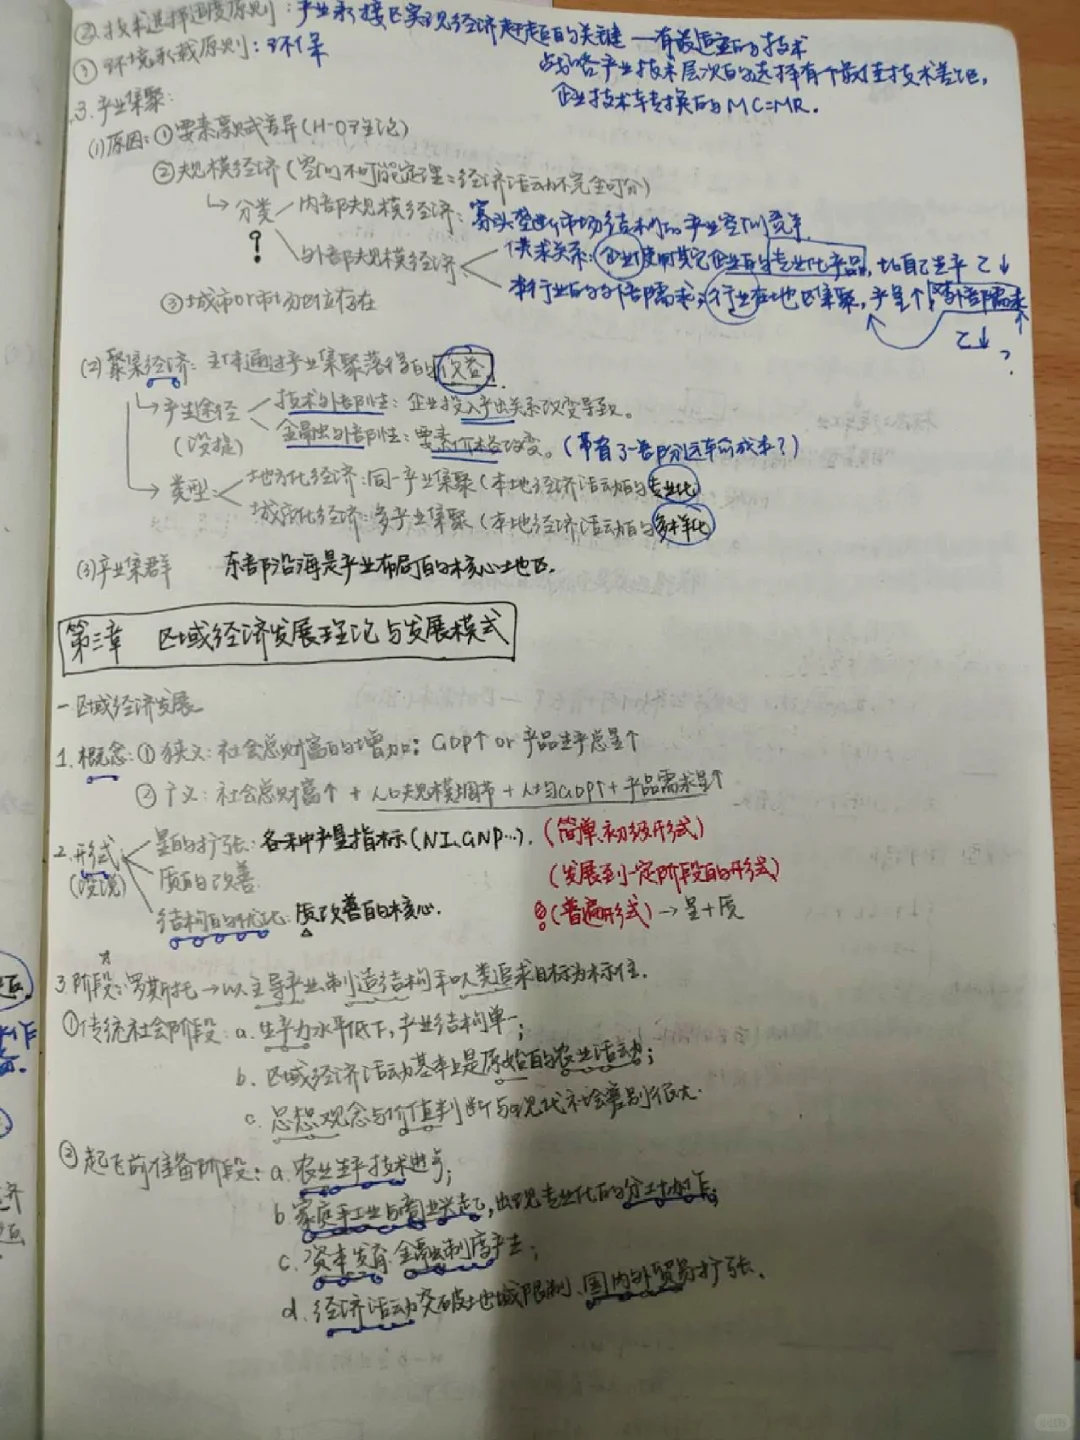 ②技术选择适度原则:产业承接区实现经济赶超的关键—有最适宜的技术
战略产业技术层次的选择有个最佳技术差距,
企业技术转换的MC=MR.
③环境承载原则:环保
3.产业集聚:
(1)原因:①要素禀赋差异(H-O理论)
②规模经济(空间不可能定理:经济活动不完全可分)
↳分类 内部规模经济:寡头垄断市场结构的产业空间竞争
? 外部规模经济 供求关系:企业使用其它企业的专业化产品,比自己生产 C↓
本行业的外部需求:行业在地区集聚,产量个 外部需求↑
C↓?
③城市or市场区位存在
(2)聚集经济:主体通过产业集聚落得的收益.
↳产生途径 技术外部性:企业投入产出关系改变导致。
(没提) 金融外部性:要素价格改变。(带有了一部分运车前成本?)
→类型: 地方化经济:同一产业集聚(本地经济活动的专业化)
城市化经济:多产业集聚(本地经济活动的多样化)
(3)产业集群 东部沿海是产业布局的核心地区.
第三章 区域经济发展理论与发展模式
一 区域经济发展
1.概念:①狭义:社会总财富的增加;GDP↑ or 产品生产总量个
②广义:社会总财富个 + 人口规模调节 + 人均GDP↑ + 产品需求量个
2.形式 量的扩张:各种产量指标(NI、GNP…). (简单.初级形式)
(没说) 质的改善 (发展到一定阶段的形式)
结构的优化:质改善的核心. (普遍形式)→量+质
3.阶段:罗斯托→以主导产业、制造结构和人类追求目标为标准.
①传统社会阶段:a.生产力水平低下,产业结构单一;
b.区域经济活动基本上是原始的农业活动;
c.思想观念与价值判断与现代社会差别很大.
②起飞前准备阶段:a.农业生产技术进步;
b.家庭手工业与商业兴起,出现专业化的分工协作;
c.资本发育.金融制度产生;
d.经济活动突破地域限制、国内外贸易扩张.